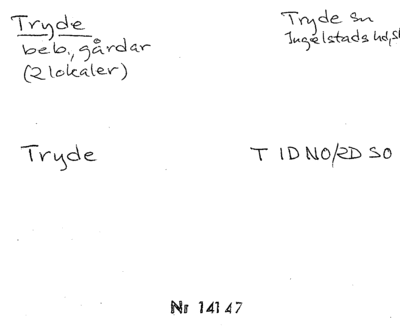 Tryde
beb., gårdar
(2 lokaler)
Tryde sn
Ingelstads hd, Sk
Tryde
T 1D NO/2D SO
Nr 14147